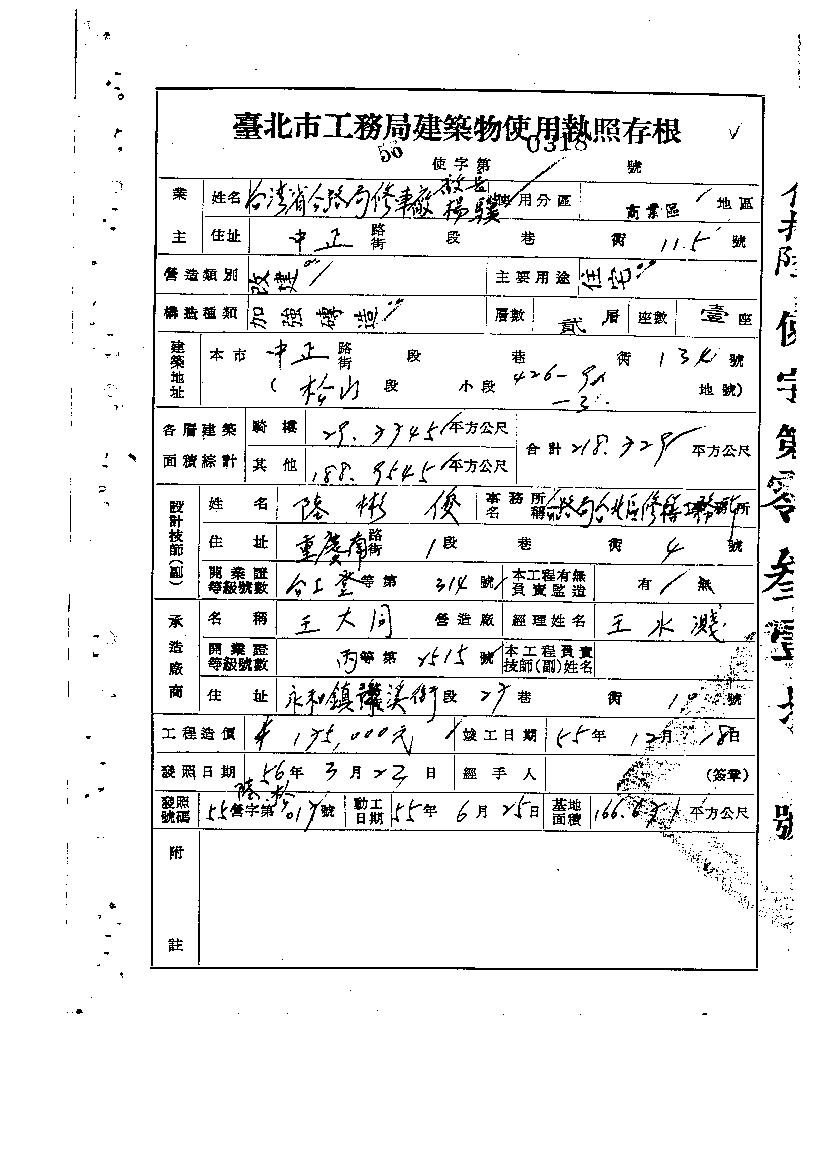 臺北市工務局建築物使用執照存根
56 使字第 0318 號
業主 姓名 台灣省公路局修車廠 廠長 楊 使用分區 商業區 地區
住址 中正 路街 段 巷 衖 115 號
營造類別 改建 主要用途 住宅
構造種類 加強磚造 層數 貳 層 座數 壹 座
建築地址 本市 中正 路街 段 巷 衖 134 號
( 松山 段 小段 426- 地號)
各層建築面積綜計 騎樓 29.3745 平方公尺 合計 218.329 平方公尺
其他 188.9545 平方公尺
設計技師(副) 姓名 陸彬俊 事務所名稱 公路局台北區修繕工務所 所
住址 重慶南 路街 1 段 巷 衖 4 號
開業證等級號數 台工登 等第 314 號 本工程有無負責監造 有 無
承造廠商 名稱 王大同 營造廠 經理姓名 王水濺
開業證等級號數 丙 等第 2515 號 本工程負責技師(副)姓名
住址 永和鎮 溪街 段 27 巷 衖 號
工程造價 175,000元 竣工日期 55年 12月 18日
發照日期 56年 3月 23日 經手人 (簽章)
陸 松
發照號碼 55營字第 017 號 動工日期 55年 6月 25日 基地面積 166. 平方公尺
附註
使字第零叁壹 號